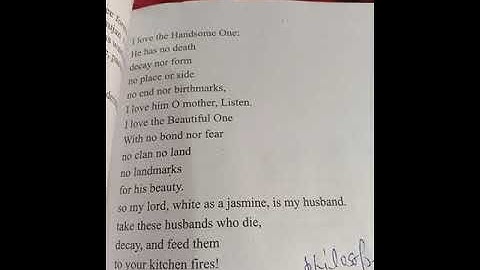 I love the Handsome One:
He has no death
decay nor form
no place or side
no end nor birthmarks,
I love him O mother, Listen.
I love the Beautiful One
With no bond nor fear
no clan no land
no landmarks
for his beauty.
so my lord, white as a jasmine, is my husband.
take these husbands who die,
decay, and feed them
to your kitchen fires!